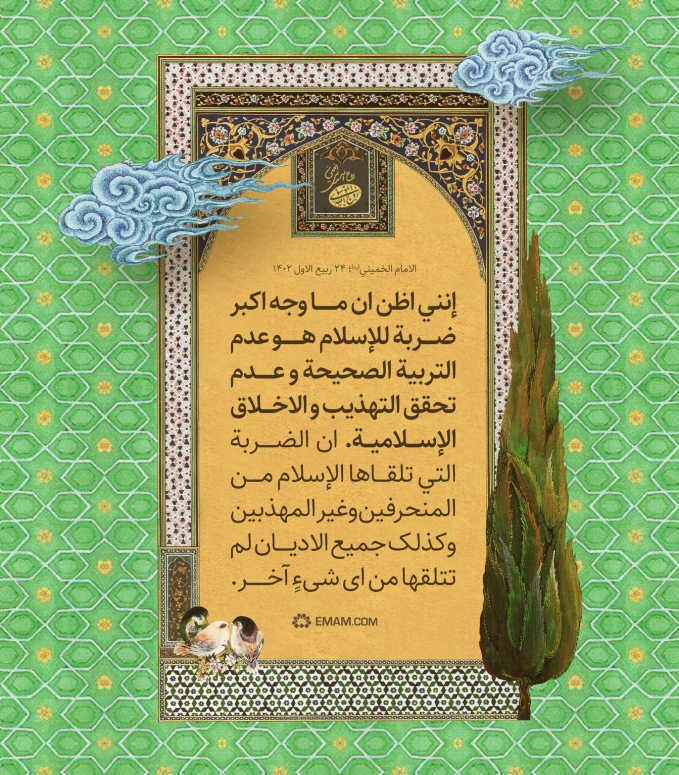 الامام الخميني(ره)؛ ۲۴ ربیع الاول ۱۴۰۲
إنني اظن ان ما وجه اكبر
ضربة للإسلام هو عدم
التربية الصحيحة و عدم
تحقق التهذيب و الاخلاق
الإسلامية. ان الضربة
التي تلقاها الإسلام من
المنحرفين وغير المهذبين
وكذلک جميع الاديان لم
تتلقها من ای شیءٍ آخر.
EMAM.COM